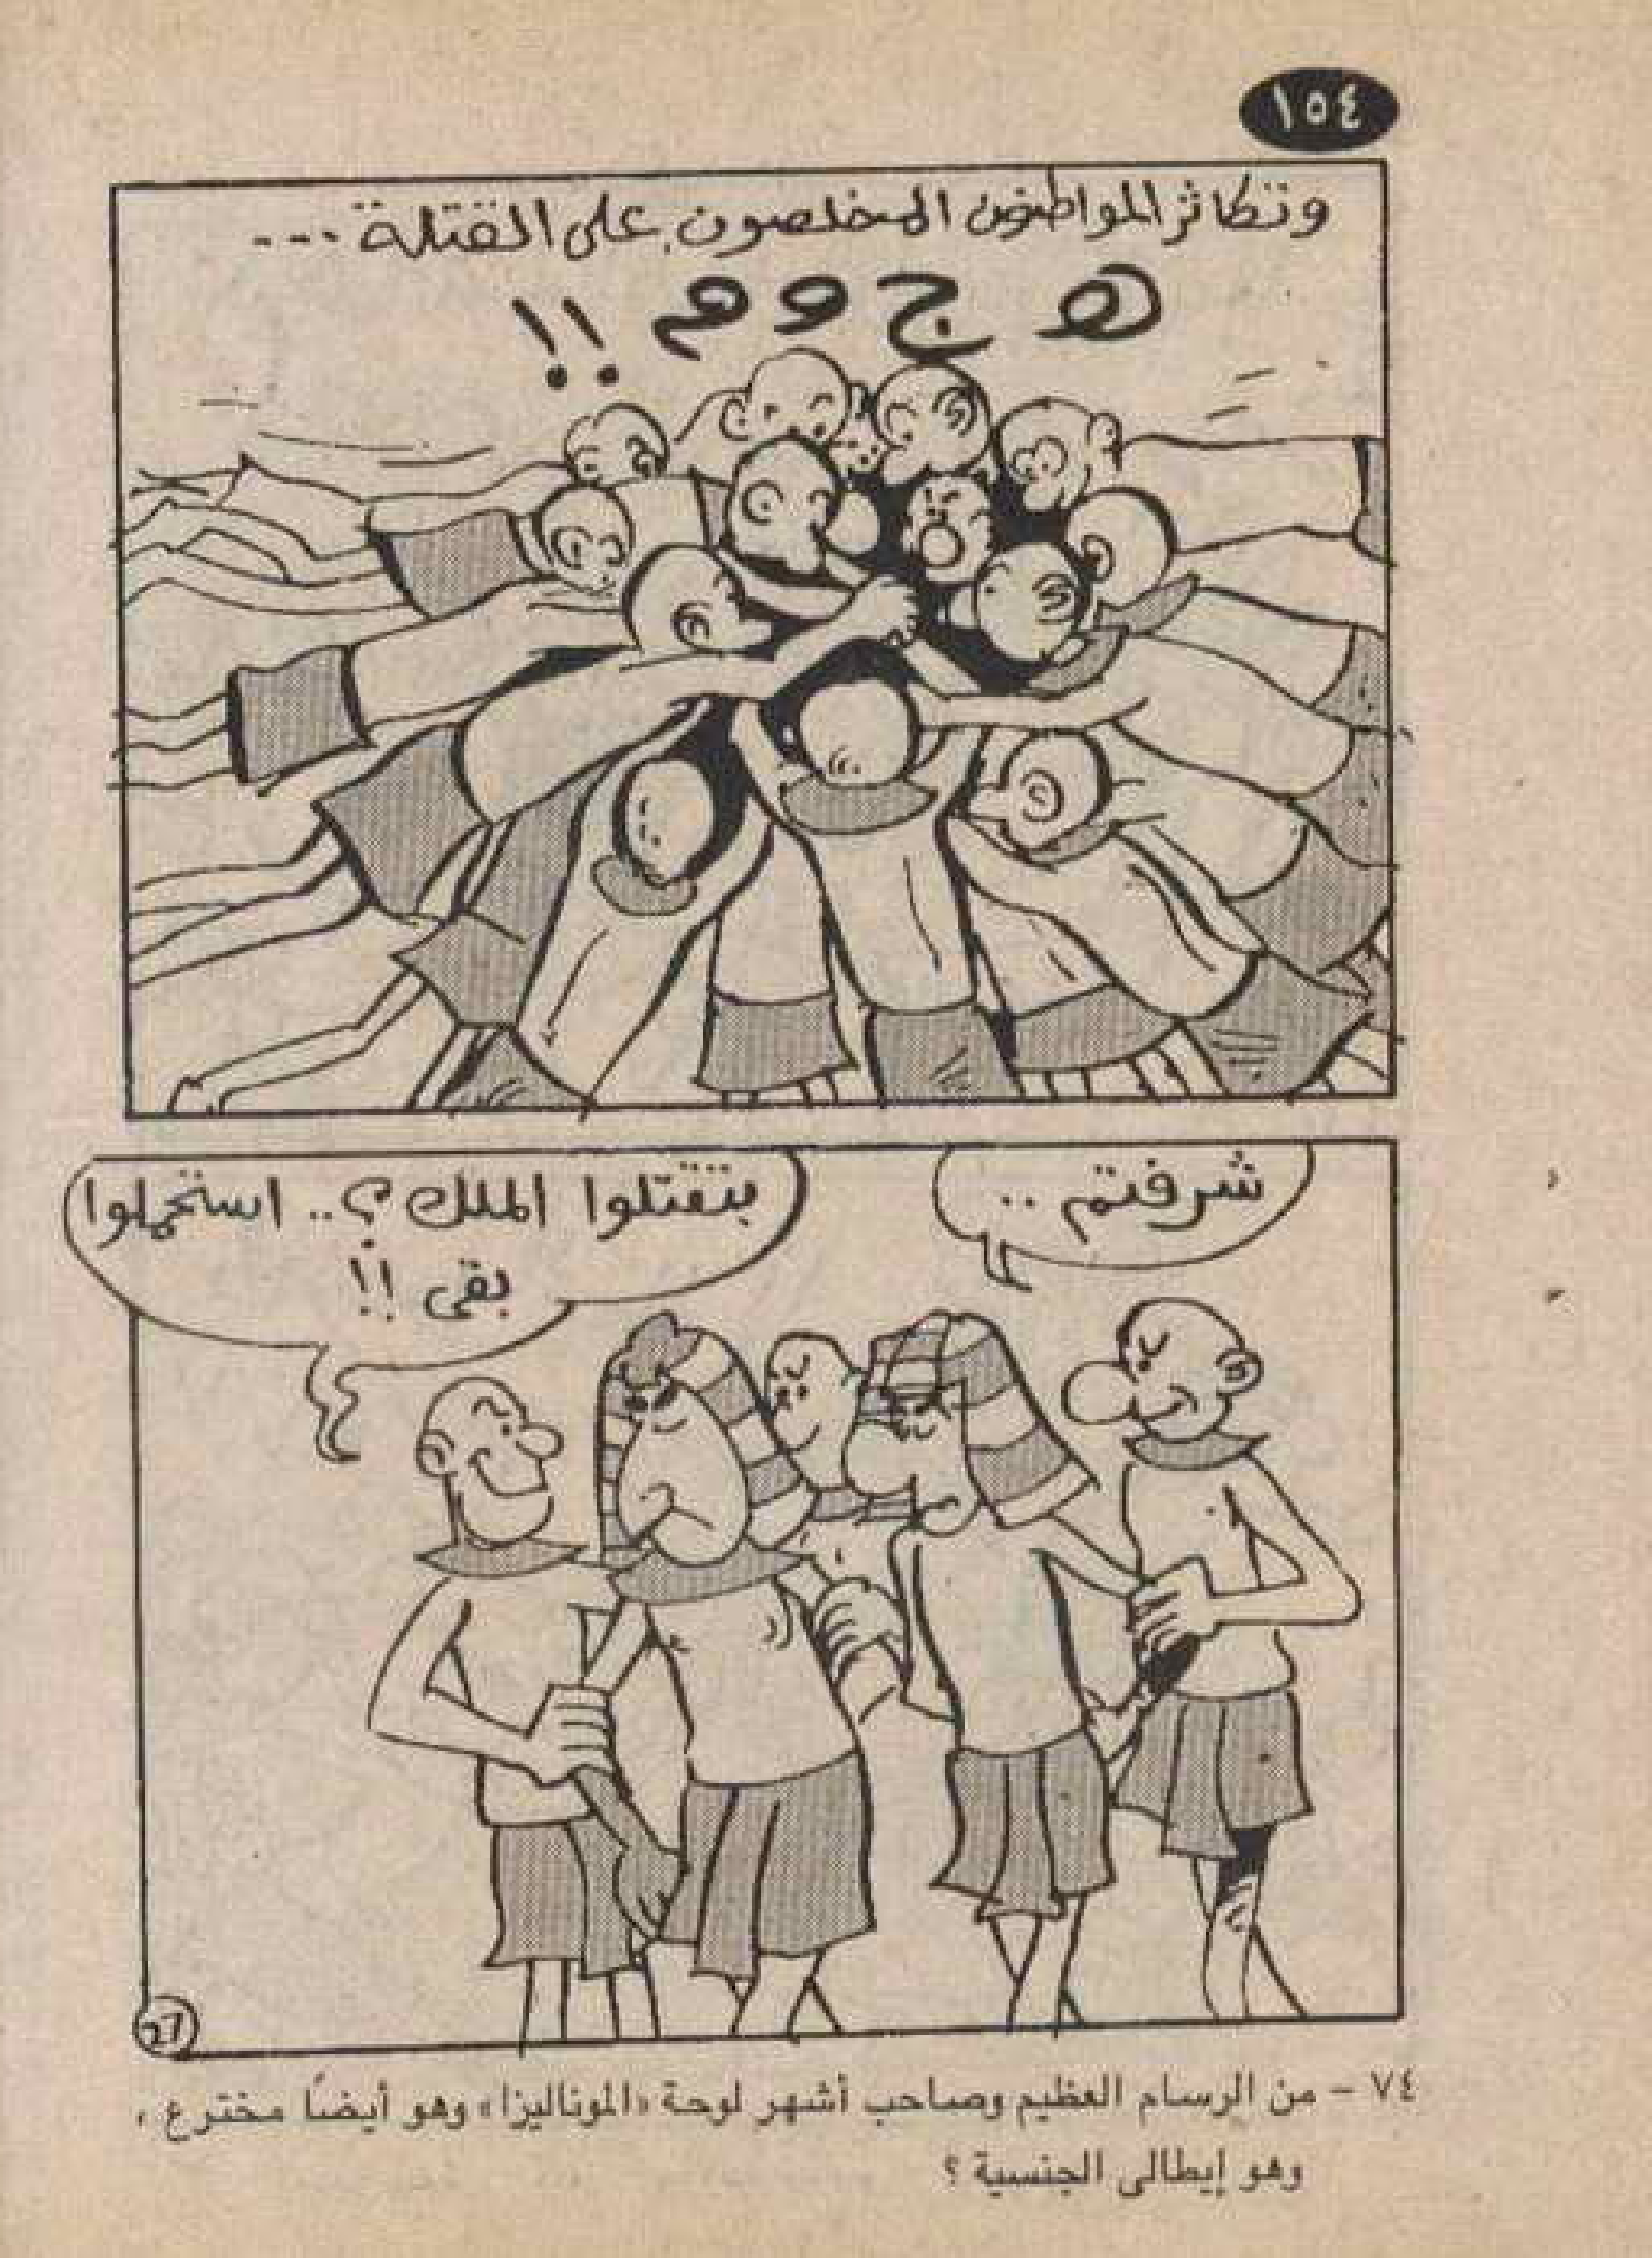 ١٥٤
وتكاثر المواطنون المخلصون على القتلة ...
هـ ج و م !!
شرفتم ..
بتقتلوا الملك ؟ .. استحملوا
بقى !!
27
٧٤ – من الرسام العظيم وصاحب أشهر لوحة «الموناليزا» وهو أيضًا مخترع ،
وهو إيطالى الجنسية ؟